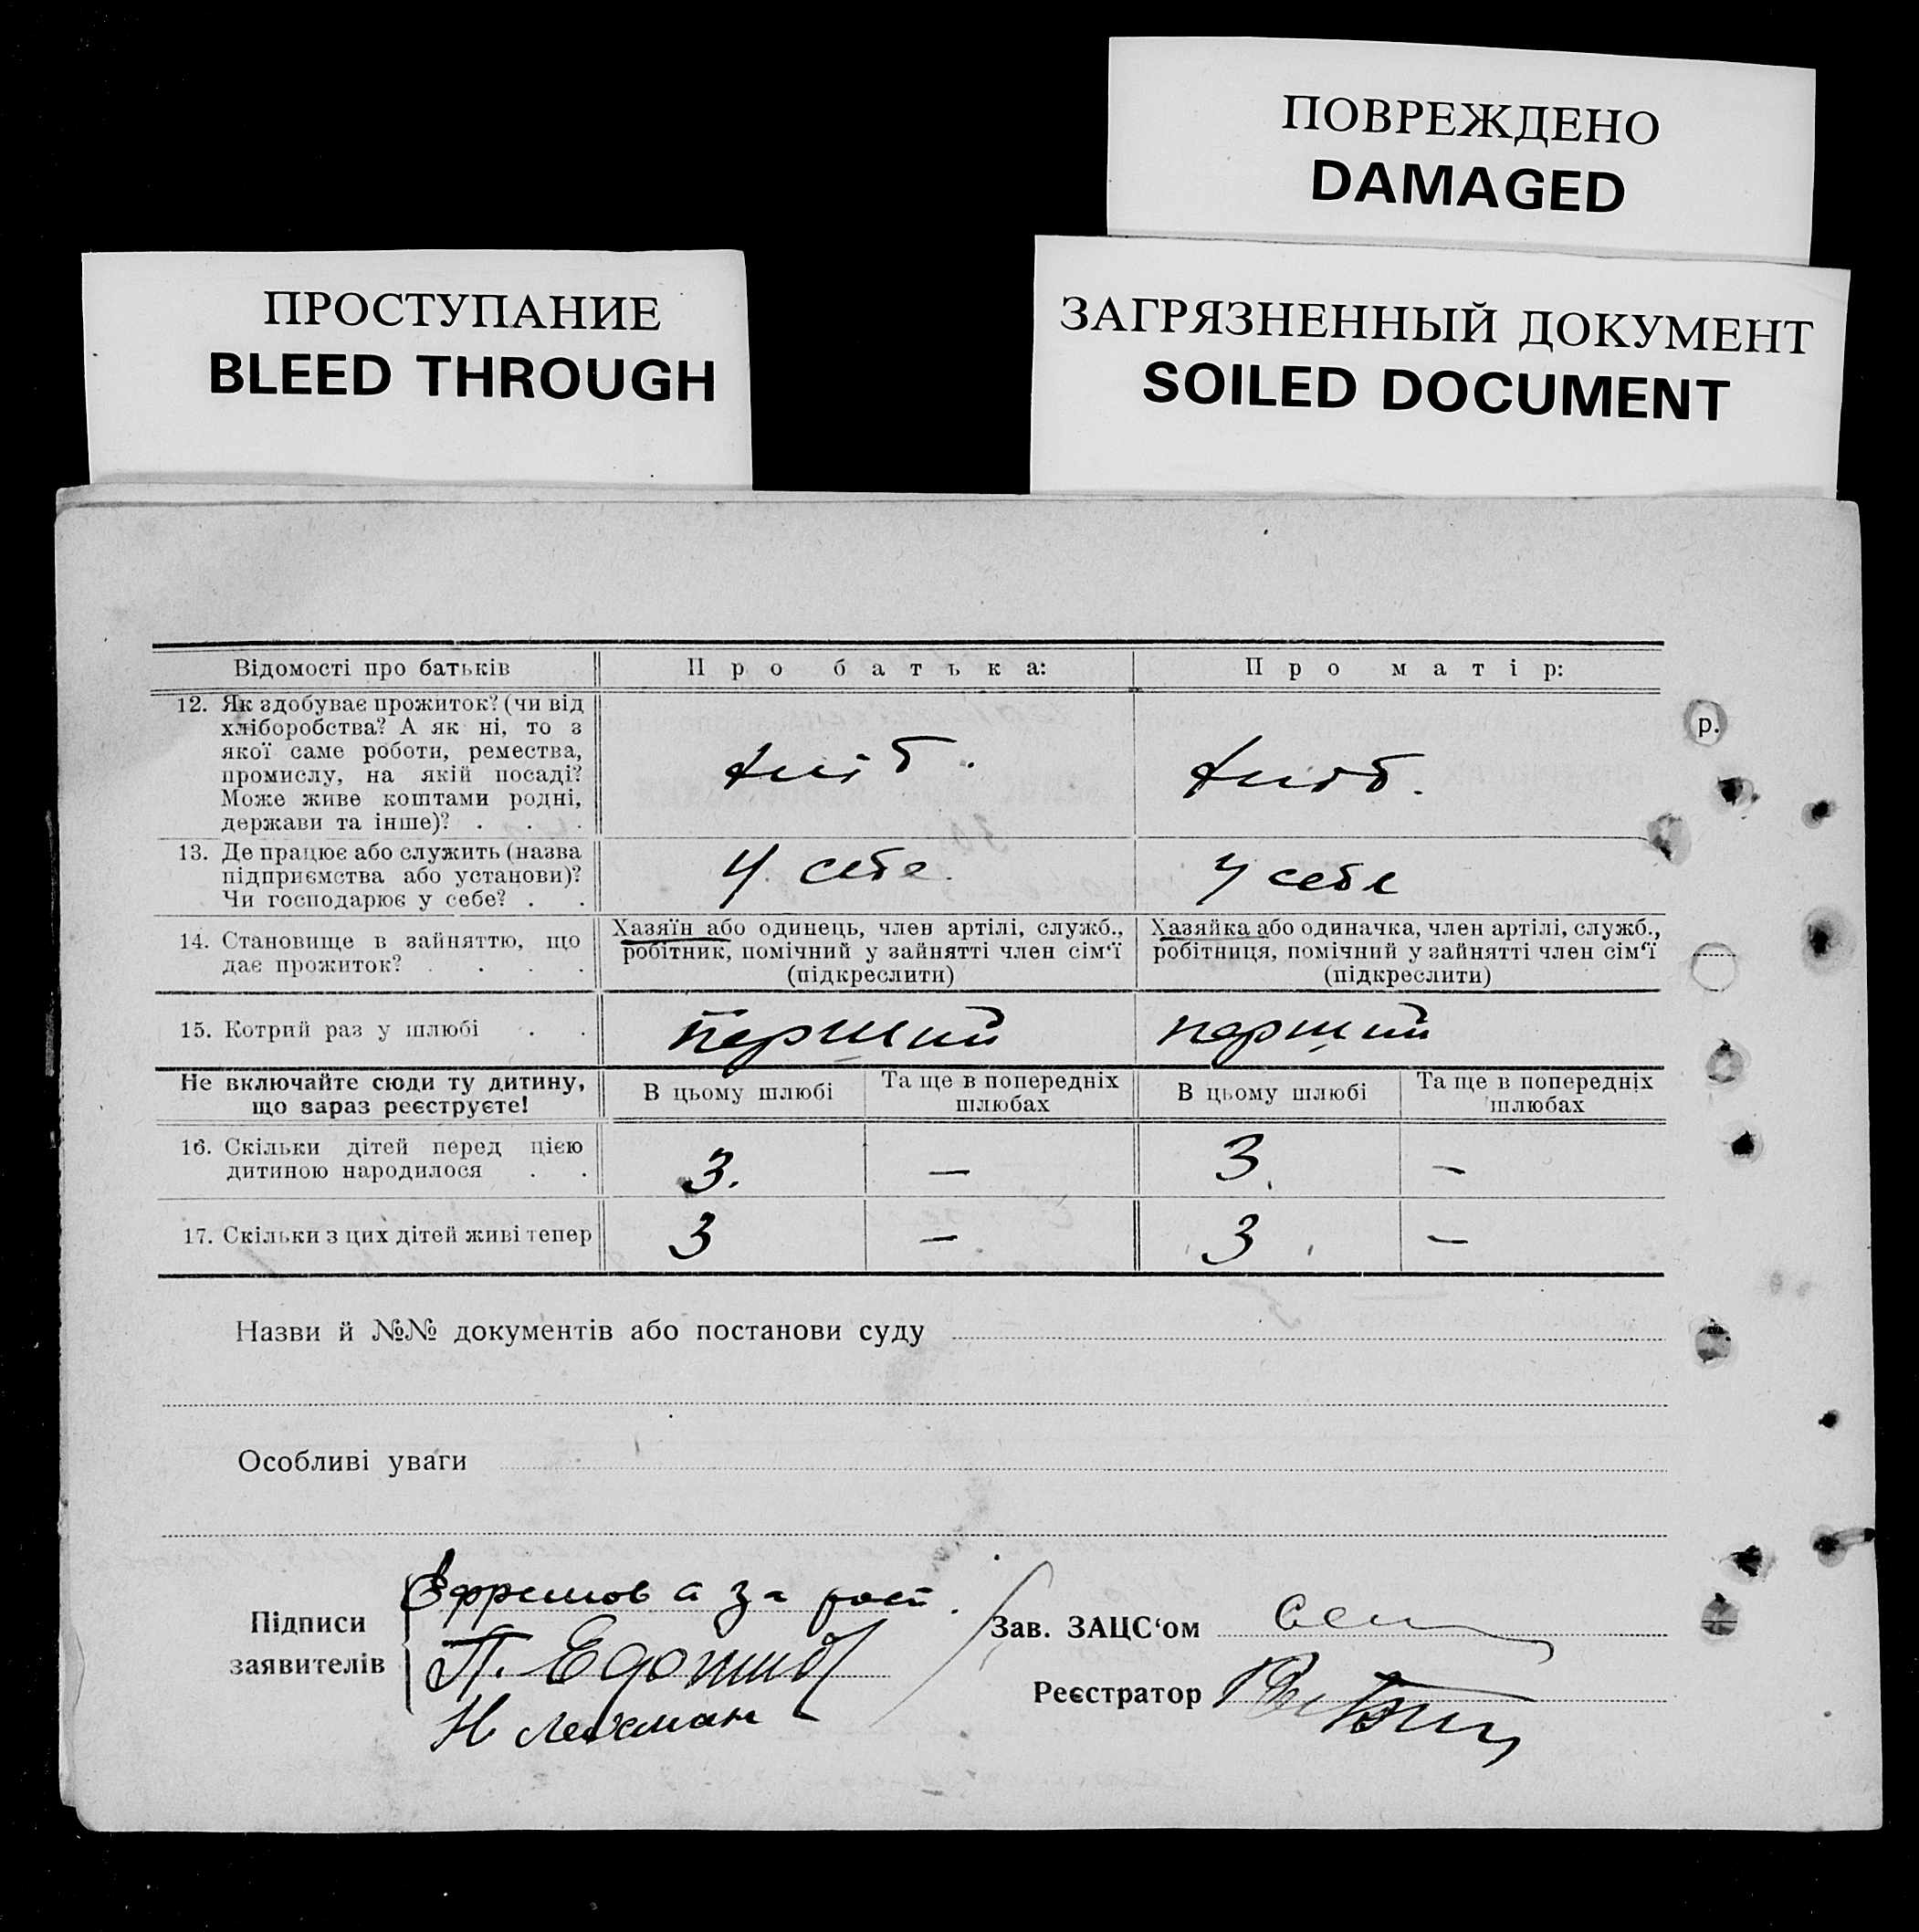 ПОВРЕЖДЕНО
DAMAGED
ПРОСТУПАНИЕ
BLEED THROUGH
ЗАГРЯЗНЕННЫЙ ДОКУМЕНТ
SOILED DOCUMENT
Відомості про батьків
Про батька:
Про матір:
12. Як здобуває прожиток? (чи від
хліборобства? А як ні, то з
якої саме роботи, ремества,
промислу, на якій посаді?
Може живе коштами родні,
держави та інше)? . . .
хліб.
хліб.
р.
13. Де працює або служить (назва
підприємства або установи)?
Чи господарює у себе? . .
У себе.
У себе
14. Становище в зайняттю, що
дає прожиток? . . . .
Хазяїн або одинець, член артілі, служб.,
робітник, помічний у зайнятті член сім‘ї
(підкреслити)
Хазяйка або одиначка, член артілі, служб.,
робітниця, помічний у зайнятті член сім‘ї
(підкреслити)
15. Котрий раз у шлюбі . .
перший
перший
Не включайте сюди ту дитину,
що зараз реєструєте!
В цьому шлюбі
Та ще в попередніх
шлюбах
В цьому шлюбі
Та ще в попередніх
шлюбах
16. Скільки дітей перед цією
дитиною народилося . .
3. — 3. —
17. Скільки з цих дітей живі тепер
3 — 3 —
Назви й №№ документів або постанови суду
Особливі уваги
Підписи
заявителів
за
П.
Н
Зав. ЗАЦС‘ом
Реєстратор